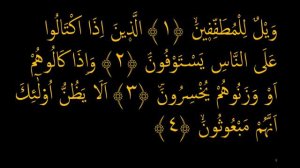 وَيْلٌ لِلْمُطَفِّفِينَ ﴿١﴾ الَّذِينَ إِذَا اكْتَالُوا
عَلَى النَّاسِ يَسْتَوْفُونَ ﴿٢﴾ وَإِذَا كَالُوهُمْ
أَوْ وَزَنُوهُمْ يُخْسِرُونَ ﴿٣﴾ أَلَا يَظُنُّ أُولَٰئِكَ
أَنَّهُمْ مَبْعُوثُونَ ﴿٤﴾